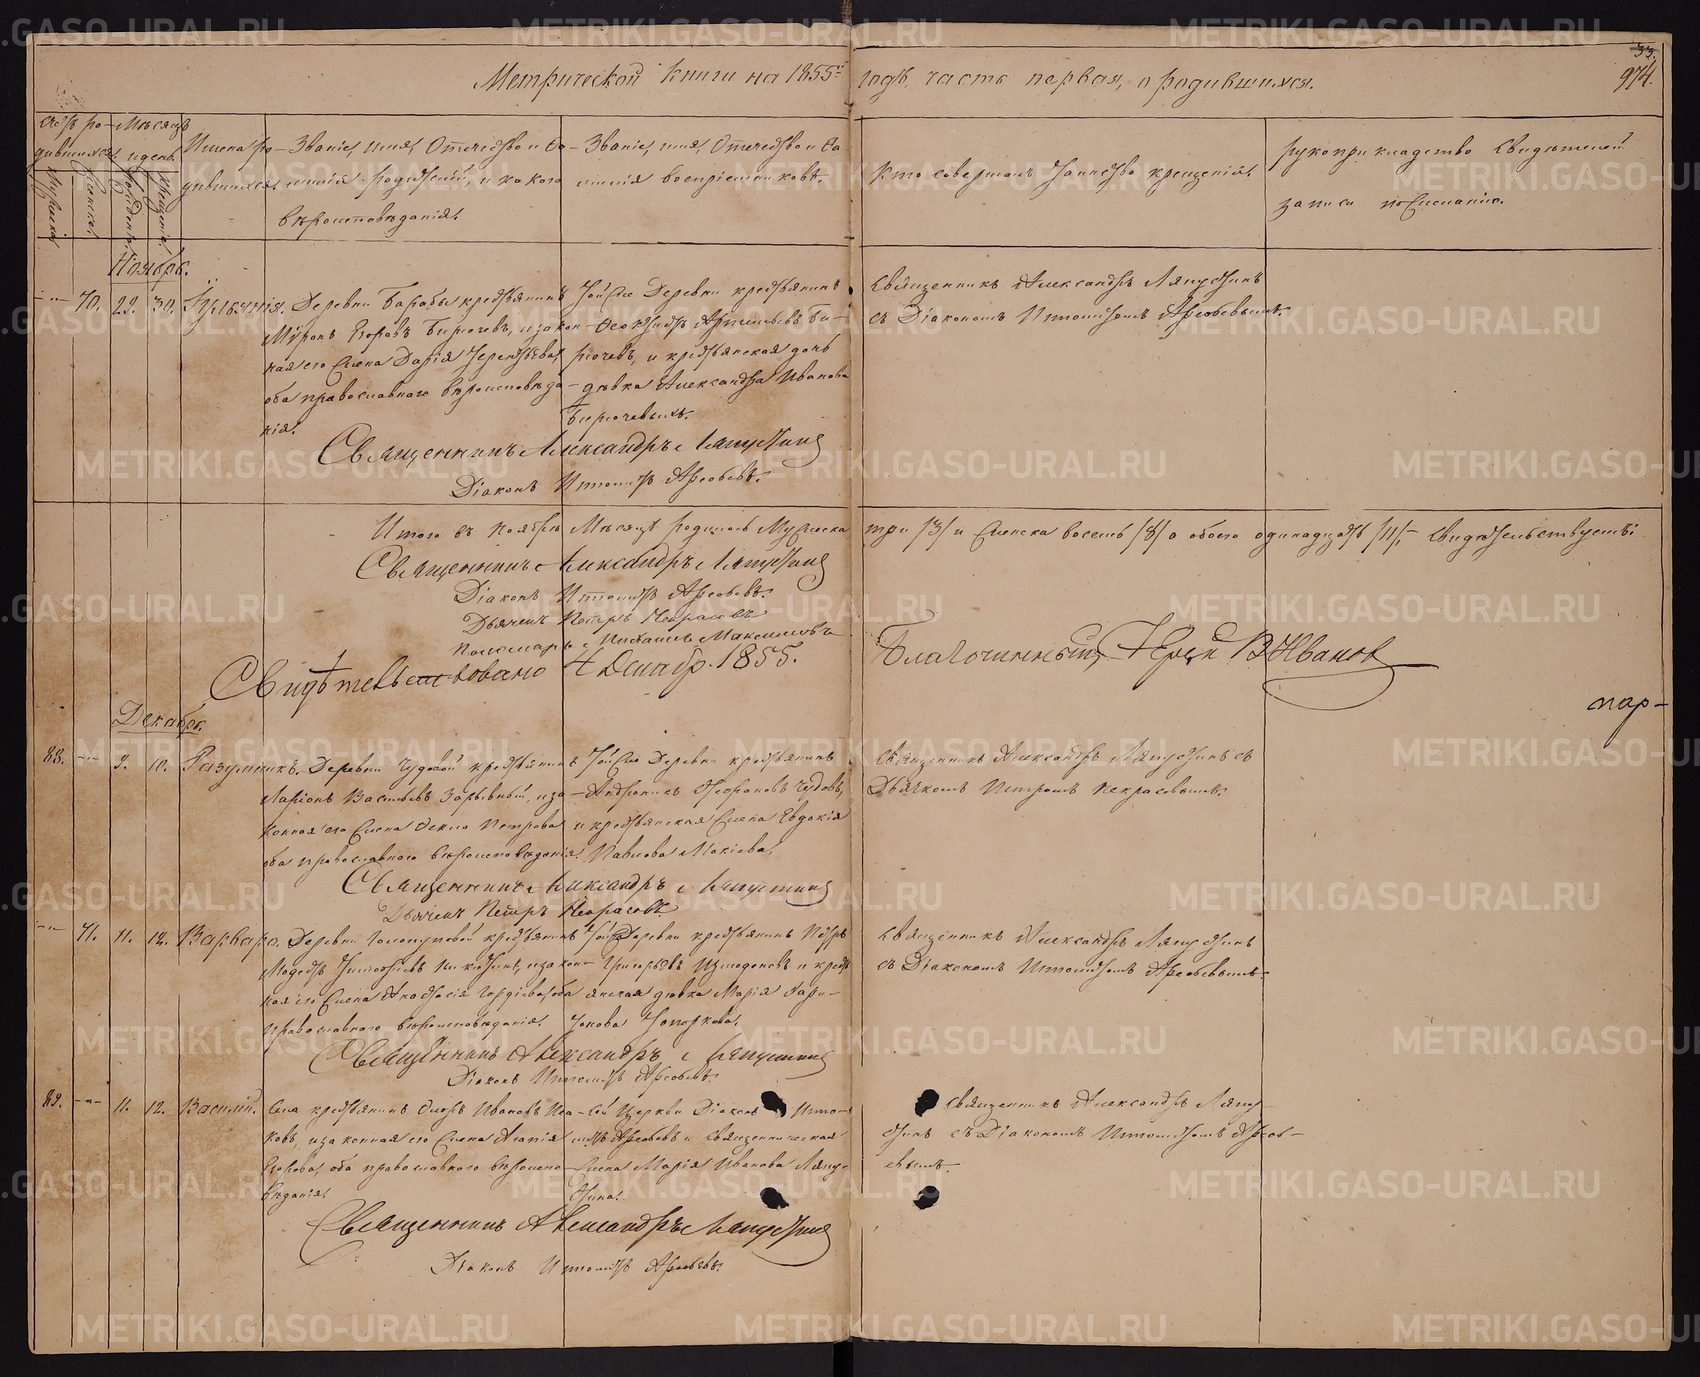 33
974.
Метрической книги на 1855й годъ, часть первая, о родившихся.
Счетъ ро-
дившихся.
Мужеска.
Женска.
Мѣсяцъ
и день.
Рожденія.
Крещенія.
Имена ро-
дившихся.
Званіе, имя, Отчество и Фа-
милія родителей, и какого
вѣроисповѣданія.
Званіе, имя, Отчество и Фа-
милія воспріемниковъ.
Кто совершалъ таинство крещенія.
рукоприкладство Свидѣтелей
записи по Желанію.
Ноябрь.
70. 29. 30. Іуліанія. Деревни Барабы крестьянинъ
Миронъ Егоровъ Бирючевъ, и закон-
ная его Жена Дарія Терентьева,
оба православнаго вѣроисповѣда-
нія.
Той же Деревни крестьянинъ
Феоктистъ Артемьевъ Би-
рючевъ, и крестьянская дочь
дѣвка Александра Иванова
Бирючевыхъ.
Священникъ Александръ Ляпустинъ
съ Діакономъ Ипполитомъ Арсеньевымъ.
Священникъ Александръ Ляпустинъ
Діаконъ Ипполитъ
Итого въ Ноябрѣ Мѣсяцѣ родилось Мужеска
три /3/ и Женска восемь /8/ а обоего одинадцать /11/, свидѣтельствуемъ:
Священникъ Александръ Ляпустинъ
Діаконъ Ипполитъ
Дьячекъ Петръ Некрасовъ
Пономарь Михаилъ Максимовъ
Свидѣтельствовано 4 Декабр. 1855.
Благочинный, Іерей В Ивановъ
пар-
Декабрь.
88. 9. 10. Разумникъ. Деревни Чудовой крестьянинъ
Ларіонъ Васильевъ Зарывный, и за-
конная его Жена Фекла Петрова
оба православнаго вѣроисповѣданія.
Той же Деревни крестьянинъ
Андроникъ Чудовъ,
и крестьянская Жена Евдокія
Павлова Мокіева.
Священникъ Александръ Ляпустинъ съ
Дьячкомъ Петромъ Некрасовымъ.
Священникъ Александръ Ляпустинъ
Дьячекъ Петръ Некрасовъ
71. 11. 12. Варвара. Деревни крестьянинъ
Модестъ Тимофѣевъ Никитинъ, и закон-
ная его Жена Анастасія Гордѣева, оба
православнаго вѣроисповѣданія.
Той же Деревни крестьянинъ Петръ
Григорьевъ Измоденовъ и крест-
янская дѣвка Марія Хари-
тонова
Священникъ Александръ Ляпустинъ
съ Діакономъ Ипполитомъ Арсеньевымъ.
Священникъ Александръ Ляпустинъ
Діаконъ Ипполитъ
89. 11. 12. Василій. Села крестьянинъ Ивановъ Иса-
ковъ, и законная его Жена Агапія
Егорова, оба православнаго вѣроиспо-
вѣданія.
Сей Церкви Діаконъ Иппо-
литъ и Священническая
Жена Марія Иванова Ляпу-
стина.
Священникъ Александръ Ляпу-
стинъ съ Діакономъ Ипполитомъ Арсень-
евымъ.
Священникъ Александръ Ляпустинъ
Діаконъ Ипполитъ
METRIKI.GASO-URAL.RU